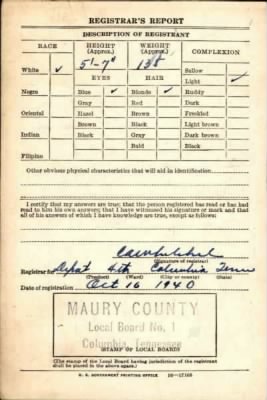 REGISTRAR'S REPORT
DESCRIPTION OF REGISTRANT
RACE HEIGHT (Approx.) WEIGHT (Approx.) COMPLEXION
White ✓ 5'-7" 138 Sallow
EYES HAIR Light ✓
Negro Blue ✓ Blonde ✓ Ruddy
Gray Red Dark
Oriental Hazel Brown Freckled
Brown Black Light brown
Indian Black Gray Dark brown
Bald Black
Filipino
Other obvious physical characteristics that will aid in identification
I certify that my answers are true; that the person registered has read or has had
read to him his own answers; that I have witnessed his signature or mark and that
all of his answers of which I have knowledge are true, except as follows:
(Signature of registrar)
Registrar for Columbia Tenn
(Precinct) (Ward) (City or county) (State)
Date of registration Oct 16 1940
MAURY COUNTY
Local Board No. 1
Columbia, Tennessee
(STAMP OF LOCAL BOARD)
(The stamp of the Local Board having jurisdiction of the registrant
shall be placed in the above space.)
U. S. GOVERNMENT PRINTING OFFICE 16—17105